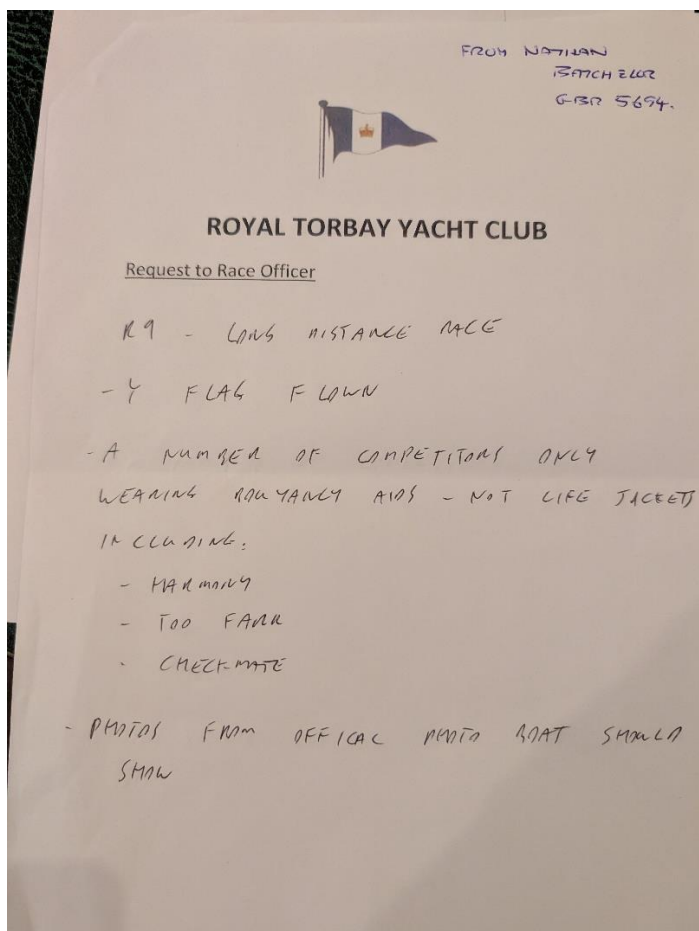 FROM NATHAN
BATCHELOR
GBR 5694.
ROYAL TORBAY YACHT CLUB
Request to Race Officer
R9 - LONG DISTANCE RACE
- Y FLAG FLOWN
- A NUMBER OF COMPETITORS ONLY
WEARING BOUYANCY AIDS - NOT LIFE JACKETS
INCLUDING:
- HARMONY
- TOO FARR
- CHECKMATE
- PHOTOS FROM OFFICAL PHOTO BOAT SHOULD
SHOW